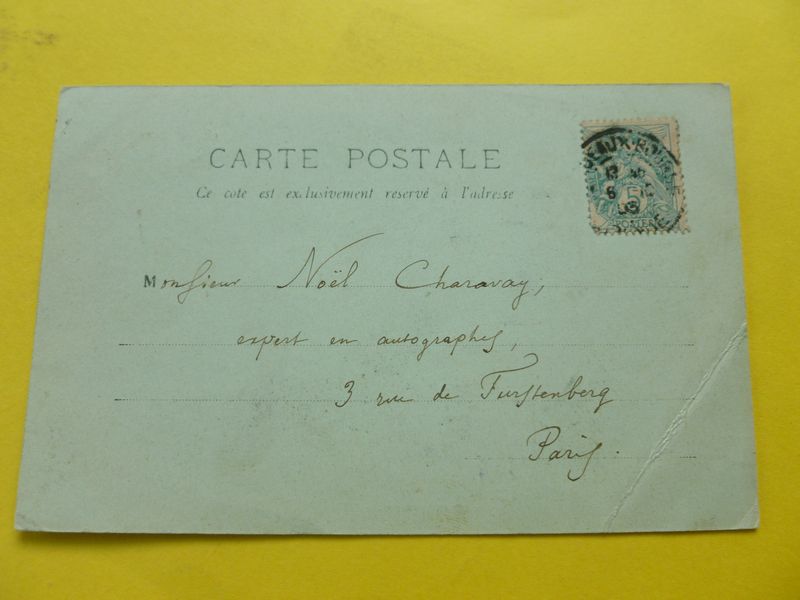 CARTE POSTALE
Ce côté est exclusivement reservé à l'adresse
5
POSTES
Monsieur Noël Charavay,
expert en autographes,
3 rue de Furstenberg
Paris.